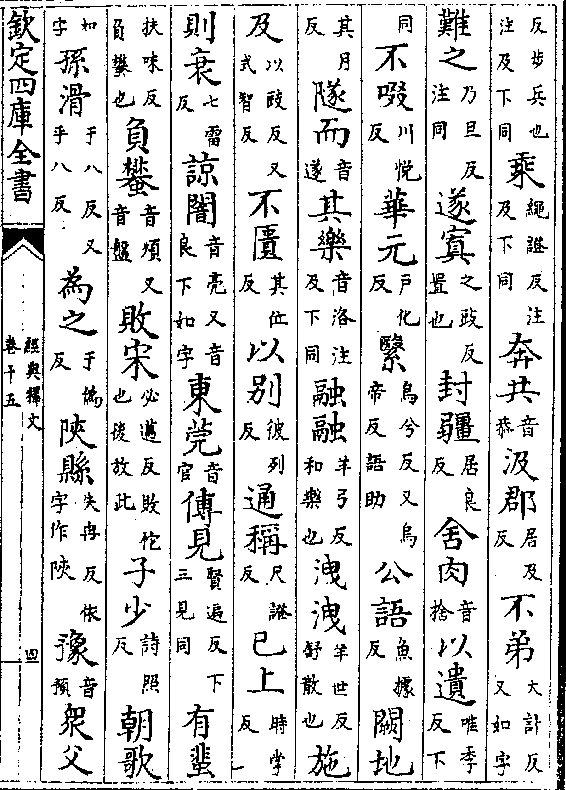 反步兵也注及下同乘繩證反注及下同奔共音恭汲郡居及反不弟大計反又如字
難之乃旦反注同遂寘之豉反置也封疆居良反舍肉音捨以遺唯季反下
同不啜川悅反華元戶化反繄烏兮反又烏帝反語助公語魚據反闕地
其月反隧而音遂其樂音洛注及下同融融羊弓反和樂也洩洩羊世反舒散也施
及以豉反又式智反不匱其位反以别彼列反通稱尺證反已上時掌反
則衰七雷反諒闇音亮又音良下如字東莞音官傅見賢遍反下三見同有蜚
扶味反負蠜也負蠜音煩又音盤敗宋必邁反敗佗也後放此子少詩照反朝歌
如字孫滑于八反又乎八反為之于偽反陝縣失冉反依字作陝豫音預衆父
欽定四庫全書
經典釋文
卷十五
四